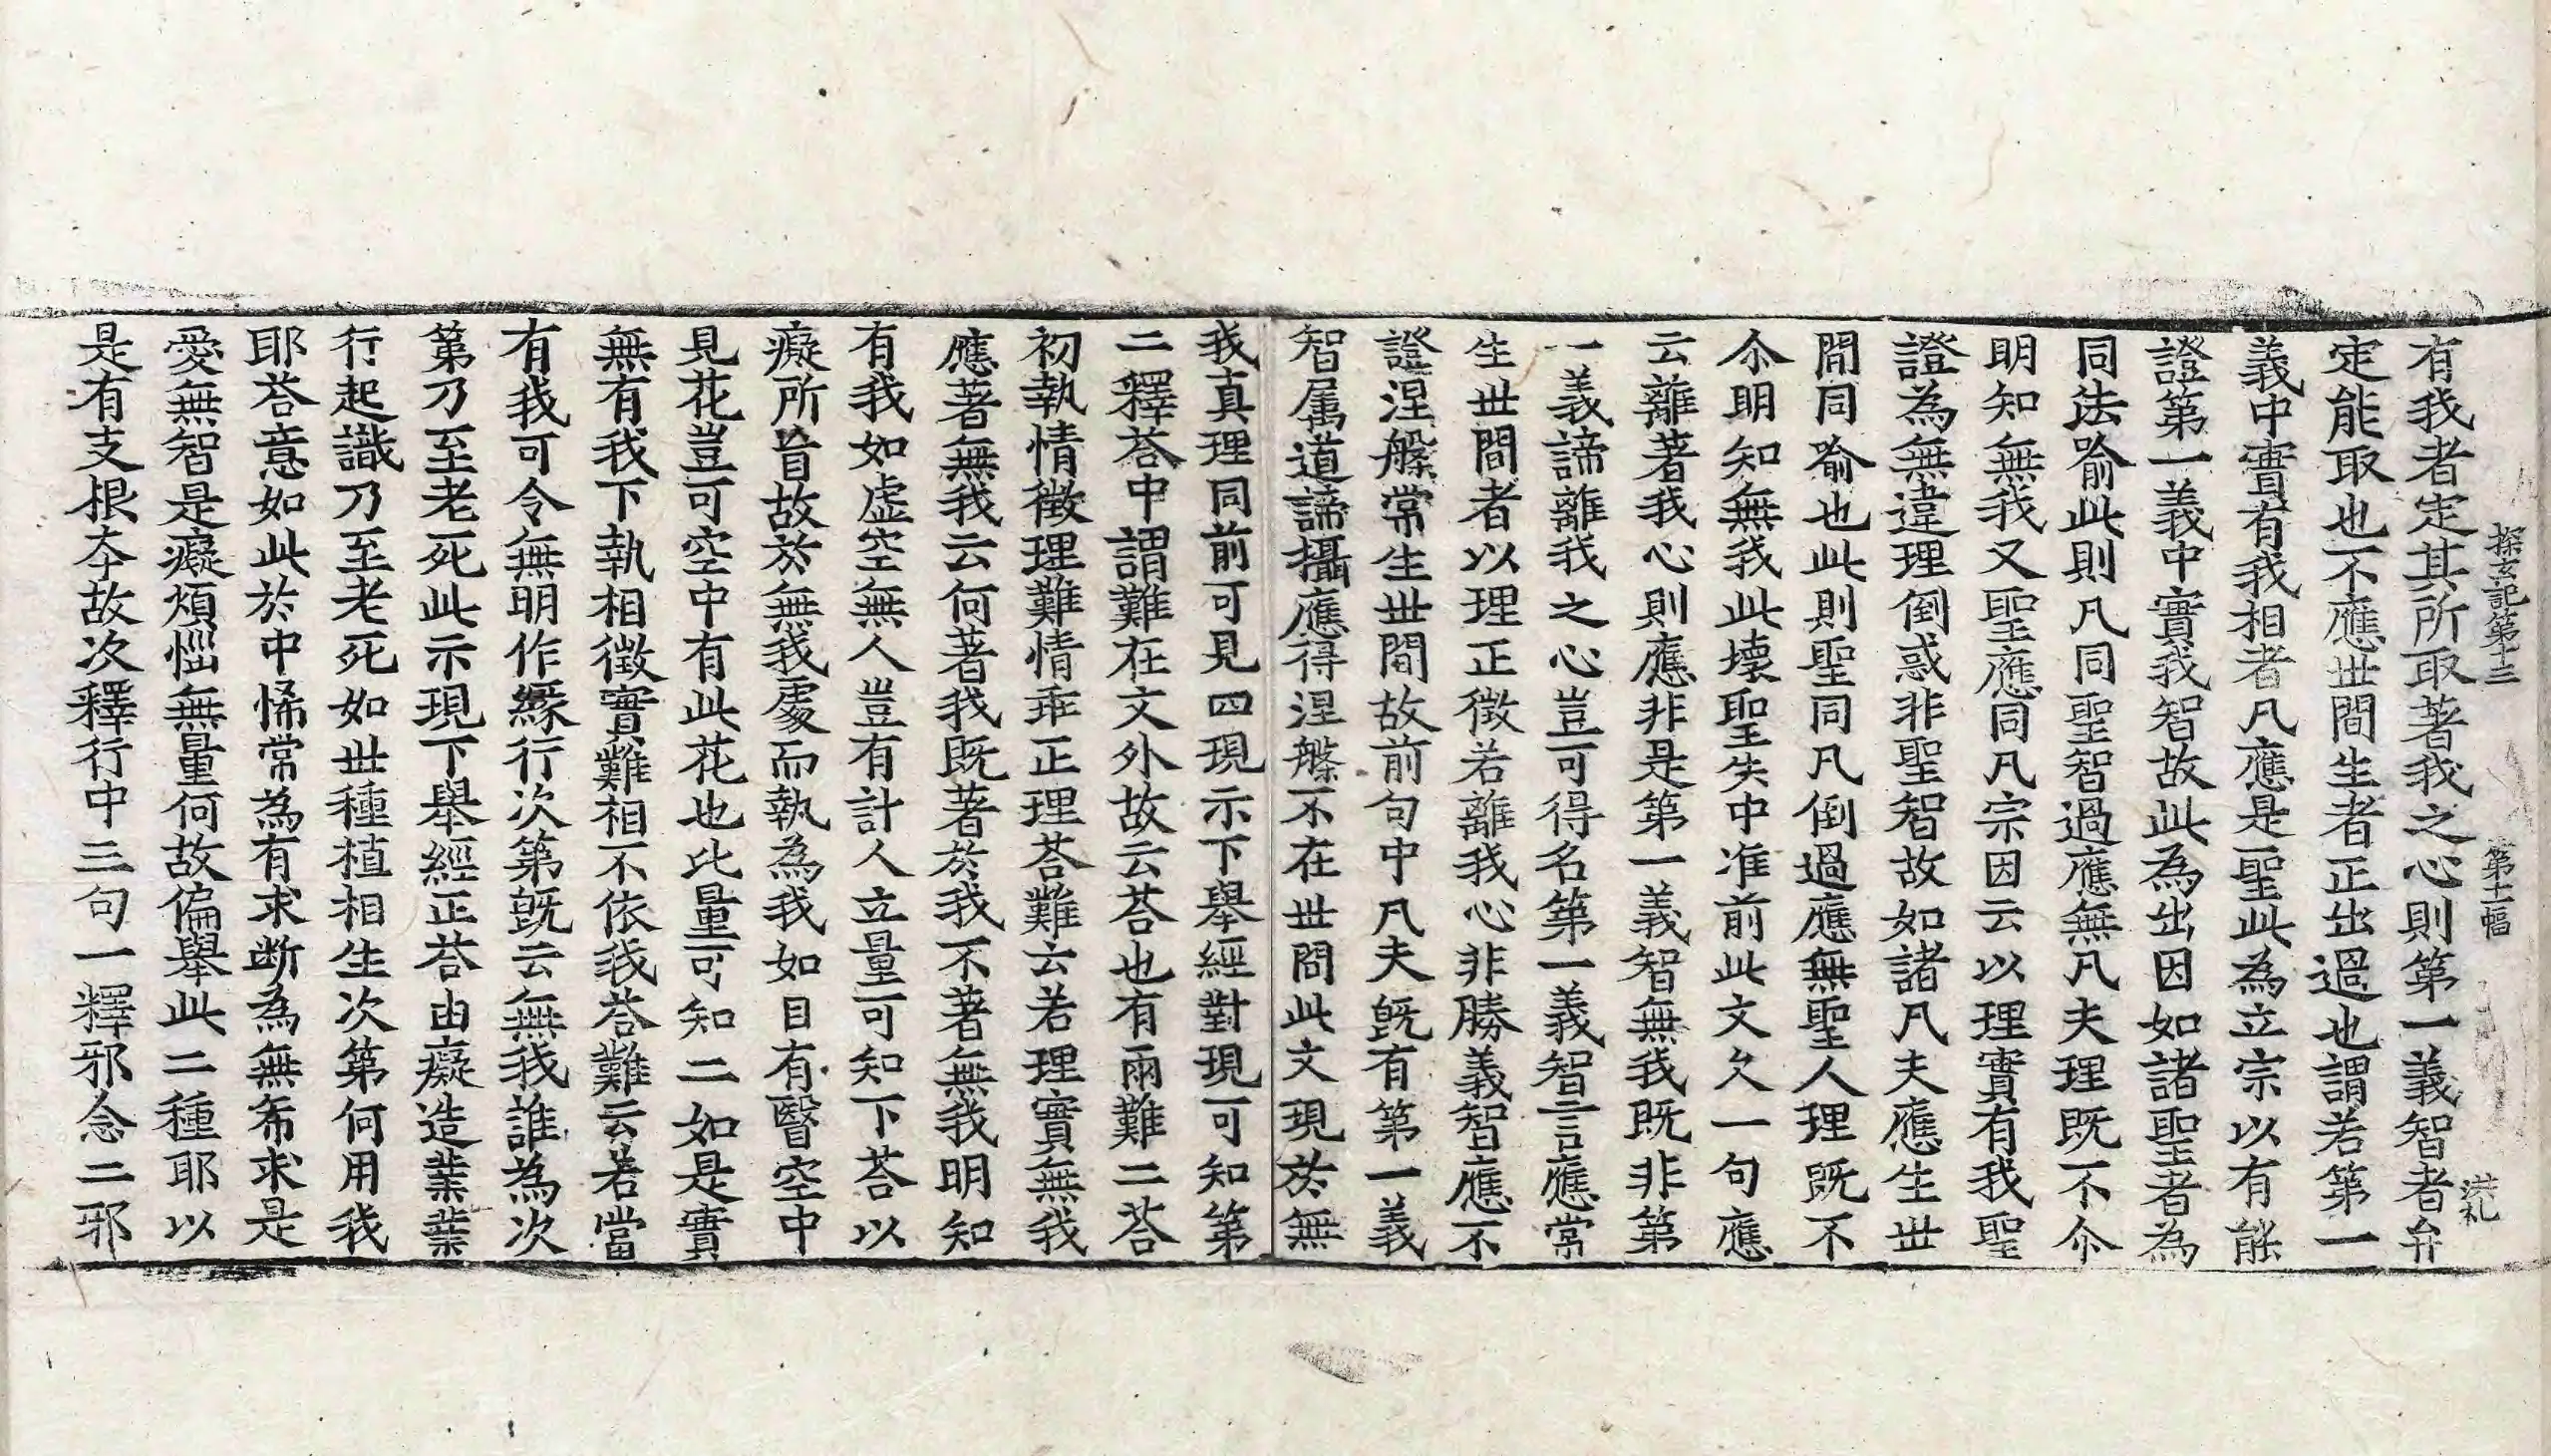 探玄記第十三　第十一幅　洪礼
有我者定其所取著我之心則第一義智者弁
定能取也不應世間生者正出過也謂若第一
義中實有我相者凡應是聖此為立宗以有能
證第一義中實我智故此為出因如諸聖者為
同法喻此則凡同聖智過應無凡夫理既不尒
明知無我又聖應同凡宗因云以理實有我聖
證為無違理倒惑非聖智故如諸凡夫應生世
間同喻也此則聖同凡倒過應無聖人理既不
尒明知無我此壞聖失中准前此文欠一句應
云離著我心則應非是第一義智無我既非第
一義諦離我之心豈可得名第一義智言應常
生世間者以理正徵若離我心非勝義智應不
證涅槃常生世間故前句中凡夫既有第一義
智属道諦攝應得涅槃不在世間此文現於無
我真理同前可見四現示下舉經對現可知第
二釋荅中謂難在文外故云荅也有兩難二荅
初執情徵理難情乖正理荅難云若理實無我
應著無我云何著我既著於我不著無我明知
有我如虛空無人豈有計人立量可知下荅以
癡所盲故於無我處而執為我如目有瞖空中
見花豈可空中有此花也比量可知二如是實
無有我下執相徵實難相不依我荅難云若當
有我可令無明作緣行次第既云無我誰為次
第乃至老死此示現下舉經正荅由癡造業業
行起識乃至老死如世種植相生次第何用我
耶荅意如此於中悕常為有求断為無希求是
愛無智是癡煩惱無量何故偏舉此二種耶以
是有支根夲故次釋行中三句一釋邪念二邪